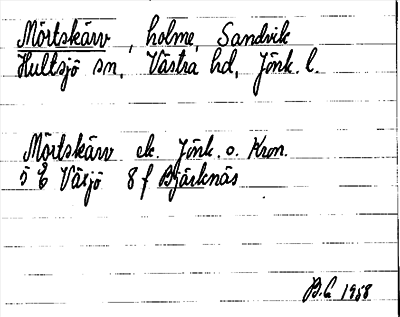 Mörtskärv, holme, Sandvik
Hultsjö sn, Västra hd, Jönk. l.
Mörtskärv ek. Jönk. o. Kron.
5 E Växjö 8 f Bjärknäs
B.C. 1958